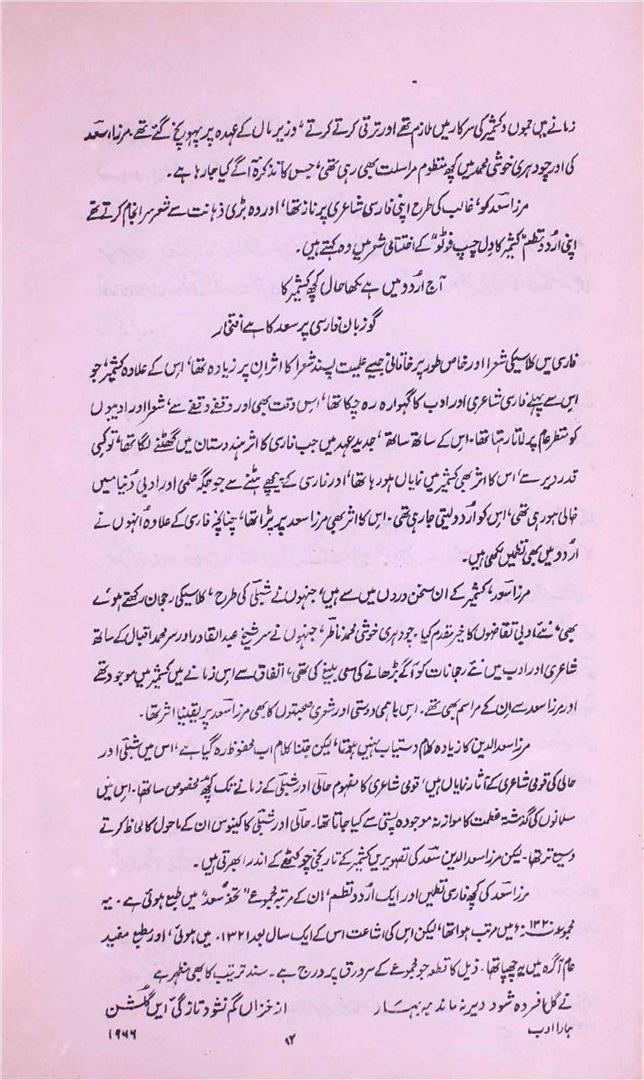 زمانے میں جموں و کشمیر کی سرکار میں ملازم تھے اور ترقی کرتے کرتے، وزیر مال کے عہدہ پر پہونچ گئے تھے۔ مرزا سعد
کی اور چودہری خوشی محمد میں کچھ منظوم مراسلت بھی رہی تھی، جس کا تذکرہ آگے کیا جارہا ہے۔
مرزا سعد کو، غالب کی طرح اپنی فارسی شاعری پر ناز تھا، اور وہ بڑی ذہانت سے شعر سرانجام کرتے تھے
اپنی اُردو نظم "کشمیر کا دل چسپ فوٹو" کے افتتاحی شعر میں وہ کہتے ہیں۔
آج اردو میں ہے لکھا حال کچھ کشمیر کا
گو زبان فارسی پر سعد کا ہے افتخار
فارسی میں کلاسیکی شعرا اور خاص طور پر خاقانی جیسے علمیت پسند شعرا کا اثر ان پر زیادہ تھا، اس کے علاوہ کشمیر، جو
اس سے پہلے فارسی شاعری اور ادب کا گہوارہ رہ چکا تھا، اس وقت بھی اور وقفے وقفے سے، شعرا اور ادیبوں
کو منظر عام پر لاتا رہتا تھا۔ اس کے ساتھ ساتھ، جدید عہد میں جب فارسی کا اثر ہندستان میں گھٹنے لگا تھا، تو کسی
قدر دیر سے، اس کا اثر بھی کشمیر میں نمایاں ہو رہا تھا، اور فارسی کے پیچھے ہٹنے سے جو جگہ علمی اور ادبی دُنیا میں
خالی ہو رہی تھی، اس کو اُردو لیتی جا رہی تھی۔ اس کا اثر بھی مرزا سعد پر پڑا تھا، چنانچہ فارسی کے علاوہ اُنہوں نے
اُردو میں بھی نظمیں لکھی ہیں۔
مرزا سعد، کشمیر کے ان سخن وروں میں سے ہیں، جنہوں نے شبلی کی طرح، کلاسیکی رجحان رکھتے ہوئے
بھی، نئے ادبی تقاضوں کا خیر مقدم کیا۔ چودہری خوشی محمد ناظر، جنہوں نے سر شیخ عبدالقادر اور سر محمد اقبال کے ساتھ
شاعری اور ادب میں نئے رجحانات کو آگے بڑھانے کی سعی بلیغ کی تھی، اتفاق سے اس زمانے میں کشمیر میں موجود تھے
اور مرزا سعد سے ان کے مراسم بھی تھے۔ اس باہمی دوستی اور شعری صحبتوں کا بھی مرزا سعد پر یقیناً اثر تھا۔
مرزا سعد الدین کا زیادہ کلام دستیاب نہیں ہوتا، لیکن جتنا کلام اب محفوظ رہ گیا ہے، اس میں شبلی اور
حالی کی قومی شاعری کے آثار نمایاں ہیں، قومی شاعری کا مفہوم حالی اور شبلی کے زمانے تک کچھ مخصوص سا تھا۔ اس میں
مسلمانوں کی گذشتہ عظمت کا موازنہ موجودہ پستی سے کیا جاتا تھا۔ حالی اور شبلی کا کینوس ان کے ماحول کا لحاظ کرتے
وسیع تر تھا۔ لیکن مرزا سعد الدین سعد کی تصویریں کشمیر کے تاریخی چوکٹھے کے اندر ابھرتی ہیں۔
مرزا سعد کی کچھ فارسی نظمیں اور ایک اُردو نظم، ان کے مرتبہ مجموعے "تحفہ سعد" میں طبع ہوئی ہے۔ یہ
مجموعہ ۱۳۲۰ھ میں مرتب ہوا تھا، لیکن اس کی اشاعت اس کے ایک سال بعد ۱۳۲۱ میں ہوئی، اور مطبع مفید
عام آگرہ میں یہ چھپا تھا۔ ذیل کا قطعہ جو مجموعے کے سرورق پر درج ہے۔ سنہ ترتیب کا بھی مظہر ہے
نے گل افسردہ شود دیر نہ ماند بہار از خزاں گم نشود تازگیٔ ایں گلشن
ہمارا ادب
۹۲
۱۹۶۶